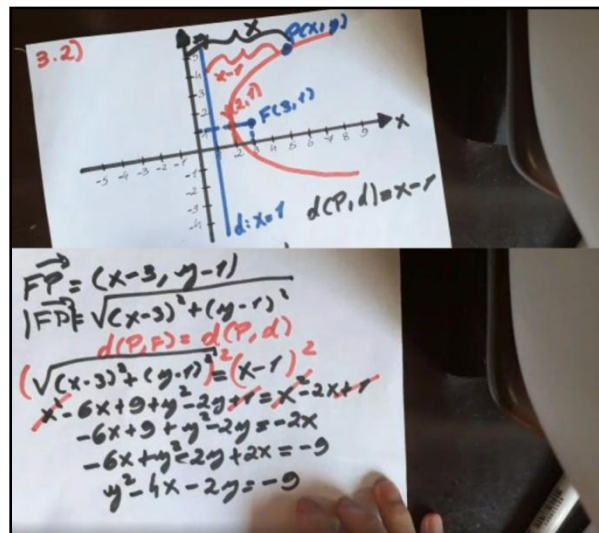 3.2)
x
P(x,y)
x-1
(2,1)
F(3,1)
x
-5 -4 -3 -2 -1 2 3 4 5 6 7 8 9
d:x=1
d(P,d)=x-1
FP=(x-3, y-1)
|FP|=√(x-3)²+(y-1)²
d(P,F)=d(P,d)
(√(x-3)²+(y-1)²)²=(x-1)²
x²-6x+9+y²-2y+1=x²-2x+1
-6x+9+y²-2y=-2x
-6x+y²-2y+2x=-9
y²-4x-2y=-9